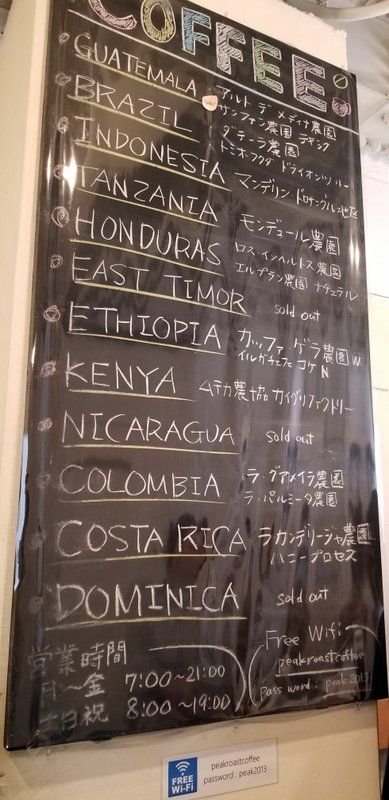 COFFEE
GUATEMALA アルト デ メディナ農園
サンファン農園
BRAZIL ダテーラ農園
トミオフクダ ドライオンツリー
INDONESIA マンデリン ドロサングール地区
TANZANIA モンデュール農園
HONDURAS ロス・インヘルトス農園
エルプラン農園 ナチュラル
EAST TIMOR sold out
ETHIOPIA カッファ・ゲラ農園 W
イルガチェフェ コケ N
KENYA ムテカ農協 カイグリファクトリー
NICARAGUA sold out
COLOMBIA ラ・グアメイラ農園
ラ・パルミータ農園
COSTA RICA ラカンデリージャ農園
ハニープロセス
DOMINICA sold out
営業時間
月〜金 7:00〜21:00
土日祝 8:00〜19:00
Free Wifi
peakroastcoffee
pass word: peak2013
FREE
Wi-Fi
peakroastcoffee
password : peak2013